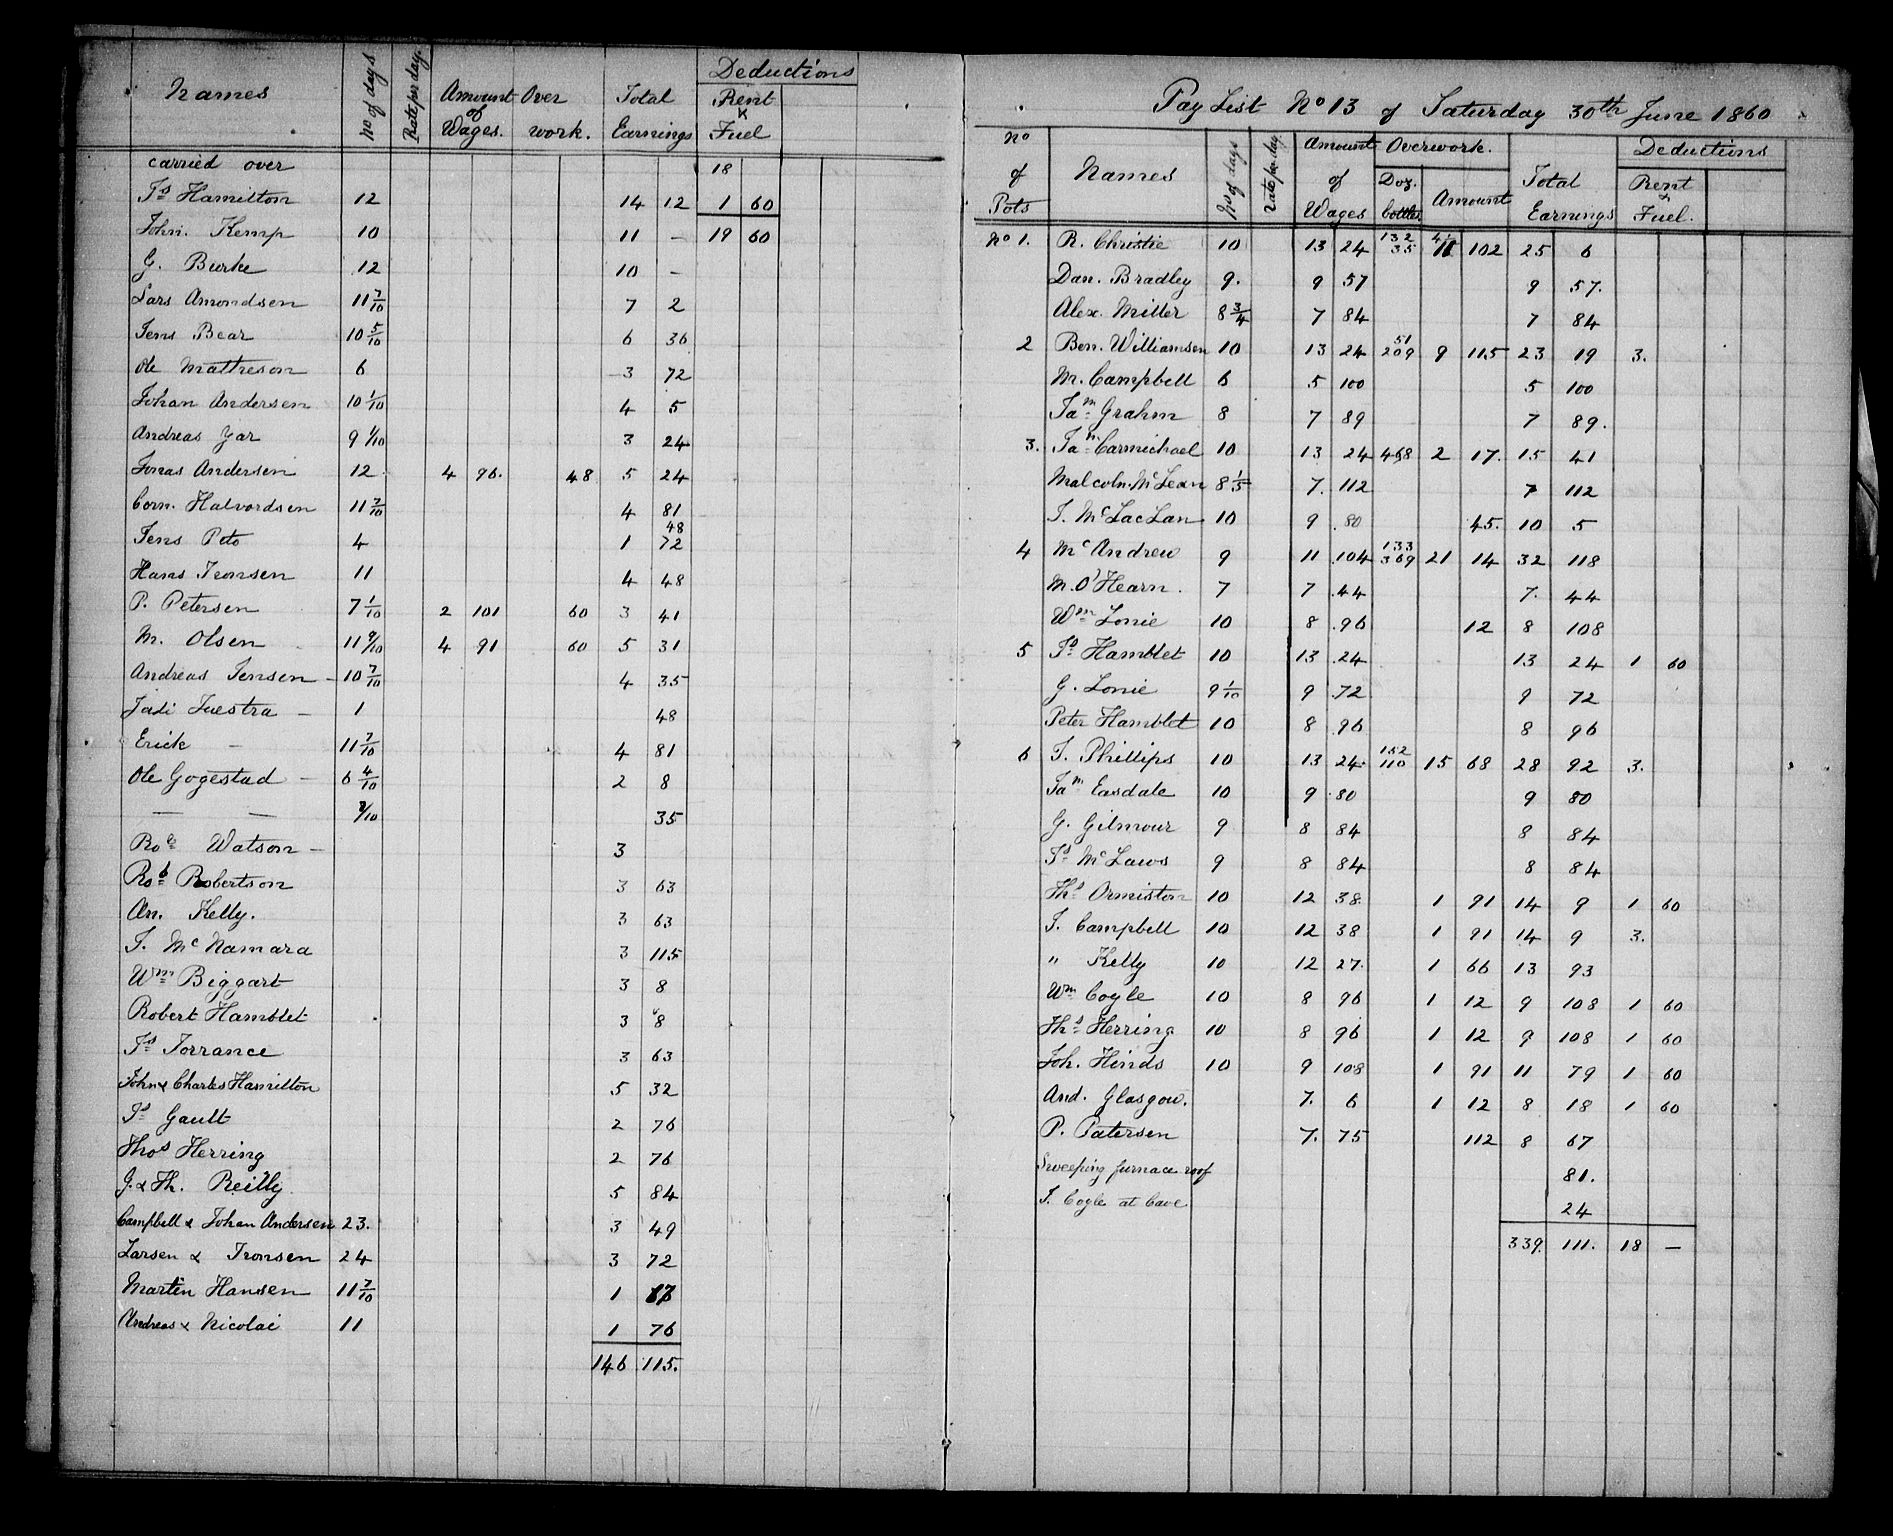 Names No of days Rate per day. Amount of Wages. Over work. Total Earnings Deductions Rent & Fuel
carried over 18
Js Hamilton 12 14 12 1 60
John. Kemp 10 11 - 19 60
G. Burke 12 10 -
Lars Amondsen 11 7/10 7 2
Jens Bear 10 5/10 6 36
Ole Mathreson 6 3 72
Johan Andersen 10 1/10 4 5
Andreas Yar 9 1/10 3 24
Jonas Andersen 12 4 96. 48 5 24
Corn. Halvordsen 11 7/10 4 81
Jens Peto 4 1 48 72
Hans Tronsen 11 4 48
P. Petersen 7 1/10 2 101 60 3 41
M. Olsen 11 9/10 4 91 60 5 31
Andreas Jensen - 10 7/10 4 35
Juestra - 1 48
Erick - 11 7/10 4 81
Ole Gogestad - 6 4/10 2 8
— — 35
Watson - 3
Rob Robertson 3 63
An. Kelly. 3 63
J. McNamara 3 115
Wm Biggart 3 8
Robert Hamblet 3 8
Js Torrance 3 63
John & Charles Hamilton 5 32
Js Gault 2 76
Thos Herring 2 76
G. & Th. Reilly 5 84
Campbell & Johan Andersen 23. 3 49
Larsen & Tronsen 24 3 72
Martin Hansen 11 7/10 1
Andreas & Nicolai 11 1 76
146 115.
Pay List No 13 of Saturday 30th June 1860
No of Pots Names No of days Rate per day Amount of Wages Overwork. Doz. bottles Amount Total Earnings Deductions Rent & Fuel.
No 1. R. Christie 10 13 24 132 35 11 102 25 6
Dan. Bradley 9. 9 57 9 57.
Alex. Miller 8 3/4 7 84 7 84
2 Ben. Williamsen 10 13 24 51 209 9 115 23 19 3.
M. Campbell 6 5 100 5 100
Jam Grahm 8 7 89 7 89.
3. Jam Carmichael 10 13 24 468 2 17. 15 41
Malcoln. McLean 8 1/5 7. 112 7 112
J. McLacLan 10 9 .80 45. 10 5
4 McAndrew 9 11 104 133 369 21 14 32 118
M. O'Hearn. 7 7 .44 7. 44
Wm Lonie 10 8 .96 12 8 108
5 Js Hamblet 10 13 .24 13 24 1 60
G. Lonie 9 1/10 9 72 9 72
Peter Hamblet 10 8 96 8 96
6 J. Phillips 10 13 24. 152 110 15 68 28 92 3.
Jam Easdale 10 9 .80 9 80
G. Gilmour 9 8 84 8 84
Js McLaws 9 8 84 8 84
Ths Ormiston 10 12 38. 1 91 14 9 1 60
J. Campbell 10 12 38 1 91 14 9 3.
" Kelly 10 12 27. 1 66 13 93
Wm Coyle 10 8 96 1 12 9 108 1 60
Ths Herring 10 8 96 1 12 9 108 1 60
Joh. Hinds 10 9 108 1 91 11 79 1 60
And. Glasgow. 7. 6 1 12 8 18 1 60
P. Patersen 7. 75 112 8 67
Sweeping furnace roof 81.
J. Coyle at Cave 24
339. 111. 18 —